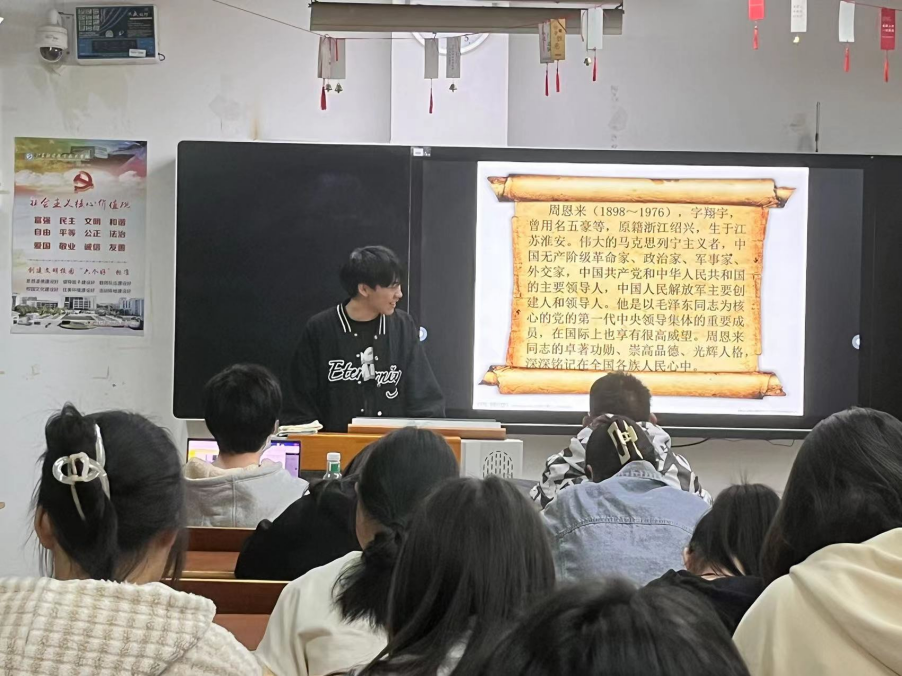 社会主义核心价值观
富强 民主 文明 和谐
自由 平等 公正 法治
爱国 敬业 诚信 友善
周恩来（1898～1976），字翔宇，
曾用名五豪等，原籍浙江绍兴，生于江
苏淮安。伟大的马克思列宁主义者，中
国无产阶级革命家、政治家、军事家、
外交家，中国共产党和中华人民共和国
的主要领导人，中国人民解放军主要创
建人和领导人。他是以毛泽东同志为核
心的党的第一代中央领导集体的重要成
员，在国际上也享有很高威望。周恩来
同志的卓著功勋、崇高品德、光辉人格，
深深铭记在全国各族人民心中。
Eternity